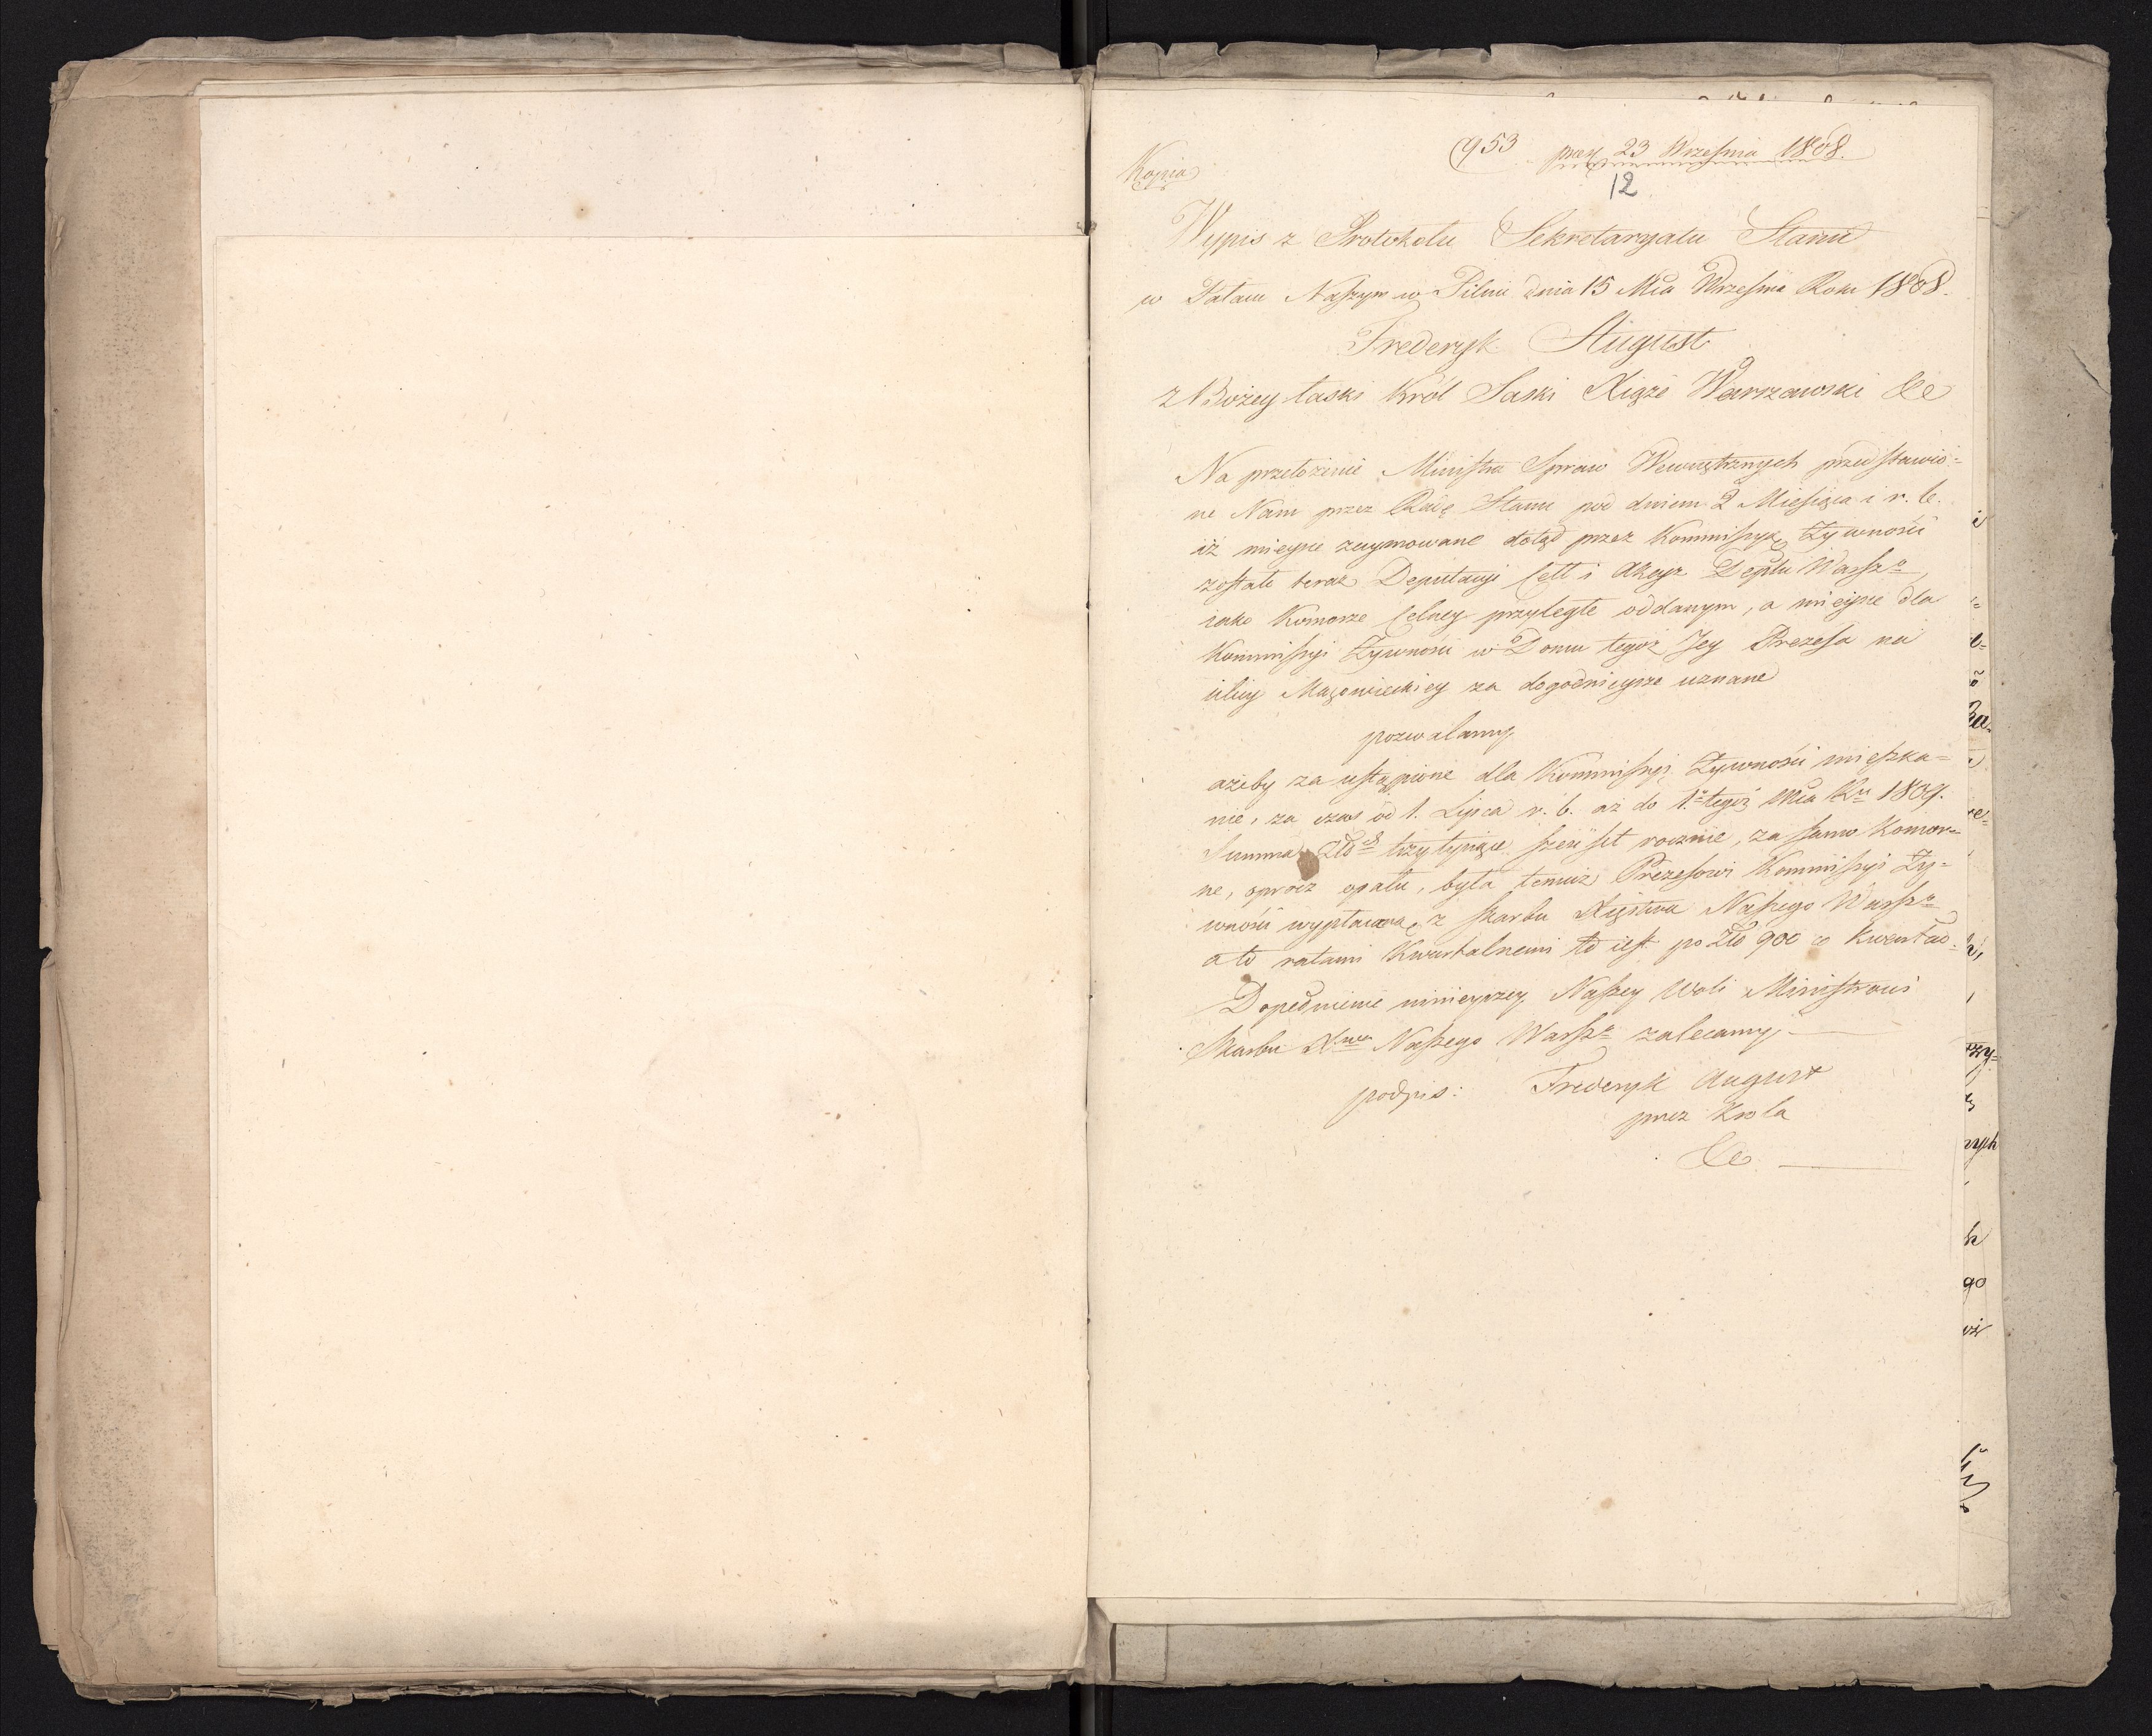 953 prez 23 Wrzesnia 1808.
Kopia
12
Wypis z Protokołu Sekretaryatu Stanu
w Pałacu Naszym w Pilnic dnia 15 Mca Wrzesnia Roku 1808.
Frederyk August
z Bożey łaski Król Saski Xiąże Warszawski &c
Na przełożenie Ministra Spraw Wewnętrznych przedstawio=
ne Nam przez Radę Stanu pod dniem 2 Miesiąca i r. b.
iż mieysce zaymowane dotąd przez Kommissyą Zywnosci
zostało teraz Deputacyi Cell i Akcyz Deptu Warsz°
iako Komorze Celney przyległe oddanym, a mieysce dla
Kommissyi Zywności w Domu tegoż Jey Prezesa na
ulicy Mazowieckiey za dogodnieysze uznane
pozwalamy
ażeby za ustąpione dla Kommissyi Zywności mieszka=
nie, za czas od 1. Lipca r. b. aż do 1° tegoż Mca Ru 1809.
Summa Złoch trzy tysiące sześćset rocznie, za samo Komor=
ne, oprócz opału, była temuż Prezesowi Kommissyi Zy=
wności wypłacana z Skarbu Xięstwa Naszego Warsz°
a to ratami Kwartalnemi to iest po Zło 900 co kwartał.
Dopełnienie ninieyszey Naszey Woli Ministrowi
Skarbu Xtwa Naszego Warsz° zalecamy.
podpis: Frederyk August
przez Krola
&c